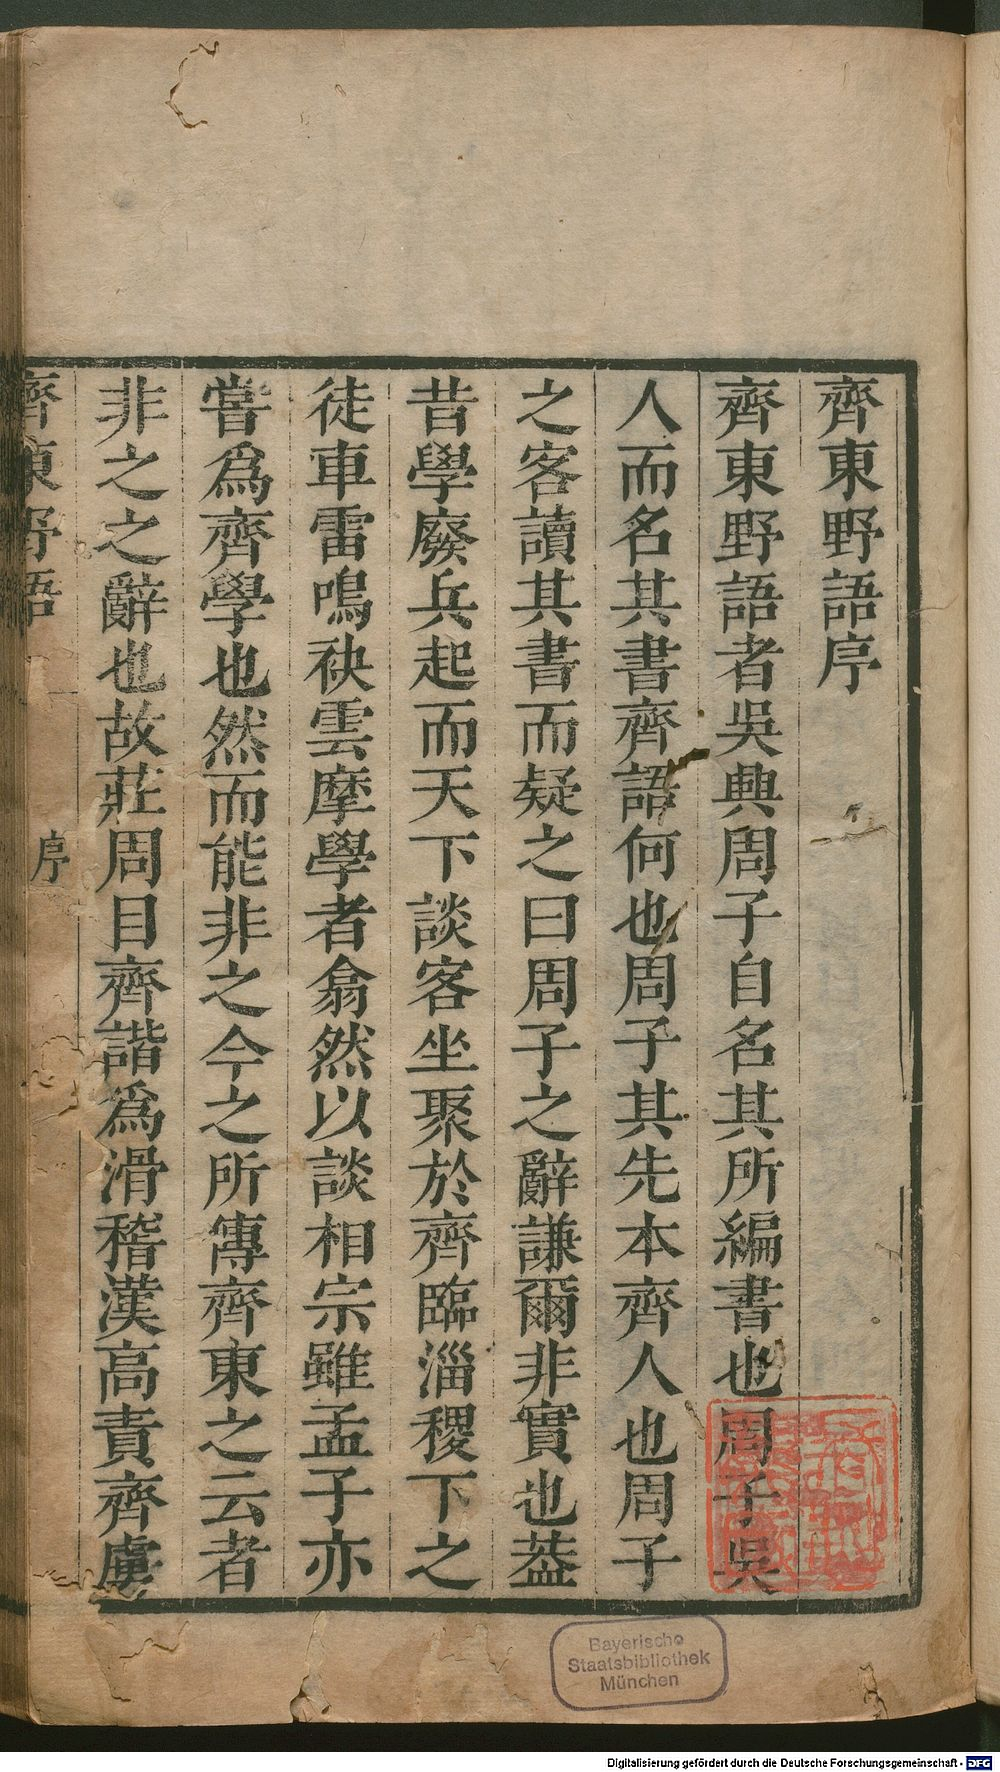 齊東野語序
齊東野語者吳興周子自名其所編書也周子吳
人而名其書齊語何也周子其先本齊人也周子
之客讀其書而疑之曰周子之辭謙爾非實也葢
昔學廢兵起而天下談客坐聚於齊臨淄稷下之
徒車雷鳴袂雲摩學者翕然以談相宗雖孟子亦
嘗爲齊學也然而能非之今之所傳齊東之云者
非之之辭也故莊周目齊諧爲滑稽漢高責齊虜
齊東野語
序
一
Bayerische
Staatsbibliothek
München
Digitalisierung gefördert durch die Deutsche Forschungsgemeinschaft - DFG